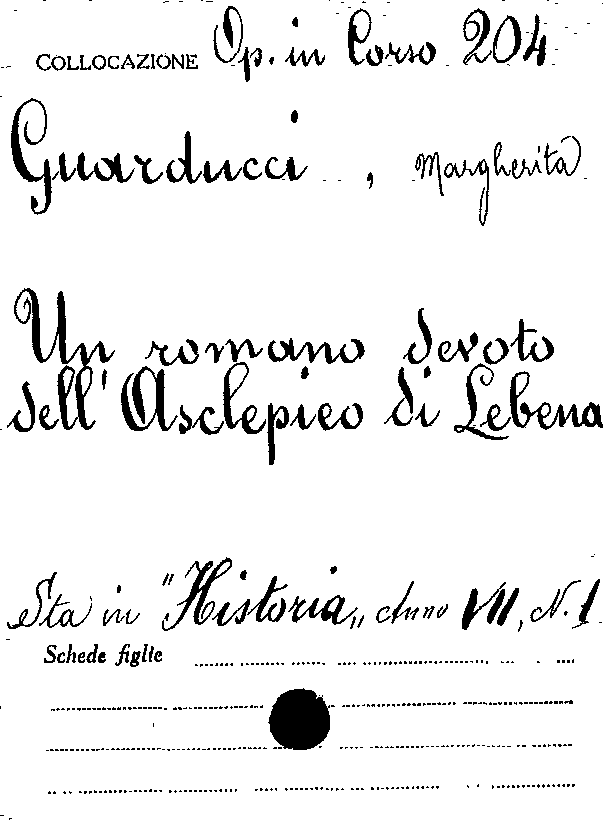 COLLOCAZIONE Op. in Corso 204
Guarducci, Margherita
Un romano devoto
dell'Asclepieo di Lebena
Sta in "Historia„ Anno VII, N. 1
Schede figlie